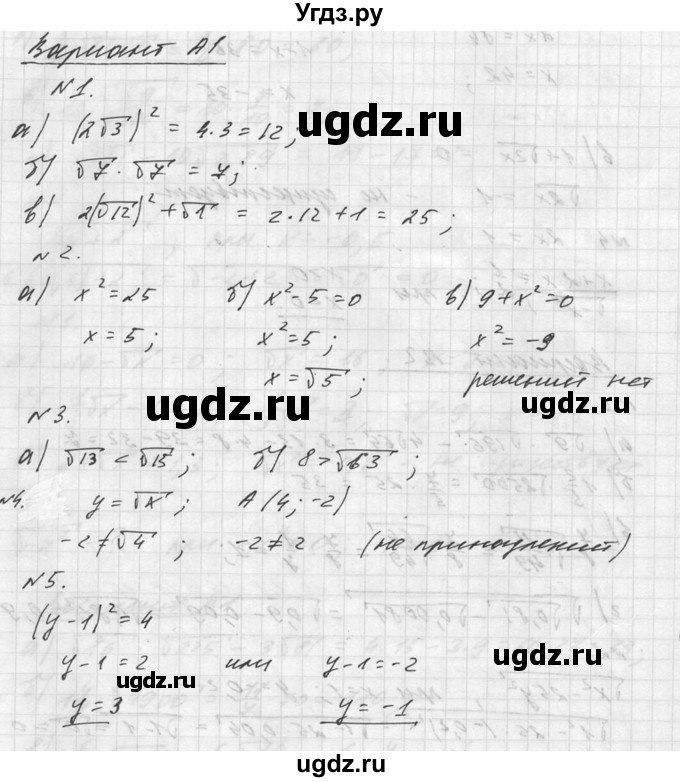 Угдз.ру
Вариант А1
№1.
а) (2√3)² = 4·3 = 12;
б) √7 · √7 = 7;
в) 2(√12)² + √1 = 2·12 + 1 = 25;
№2.
а) x² = 25 б) x² - 5 = 0 в) 9 + x² = 0
x = 5; x² = 5; x² = -9
x = √5; решений нет
№3.
а) √13 < √15; б) 8 > √63;
№4. y = √x; A (4; -2)
-2 ≠ √4; -2 ≠ 2 (не принадлежит)
№5.
(y-1)² = 4
y - 1 = 2 или y - 1 = -2
y = 3 y = -1
ugdz.ru
ugdz.ru
ugdz.ru
ugdz.ru
ugdz.ru
ugdz.ru
ugdz.ru
ugdz.ru